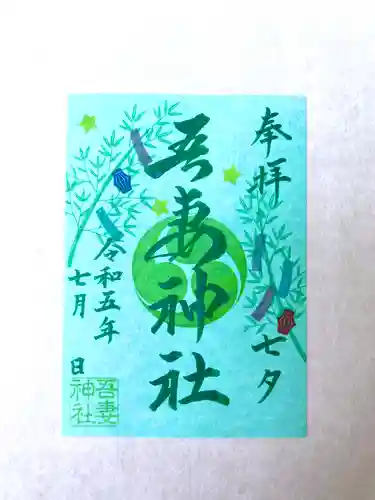 奉拝
七夕
吾妻神社
令和五年
七月 日
吾妻
神社